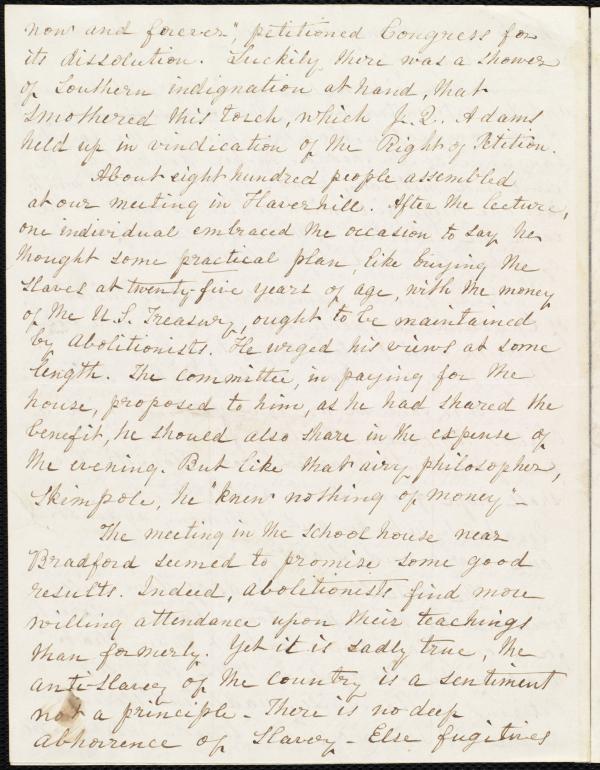 now and forever", petitioned Congress for
its dissolution. Luckily there was a shower
of Southern indignation at hand, that
smothered this torch, which J. Q. Adams
held up in vindication of the Right of Petition.
About eight hundred people assembled
at our meeting in Haverhill. After the lecture,
one individual embraced the occasion to say he
thought some practical plan, like buying the
slaves at twenty-five years of age, with the money
of the U.S. Treasury, ought to be maintained
by abolitionists. He urged his views at some
length. The committee, in paying for the
house, proposed to him, as he had shared the
benefit, he should also share in the expense of
the evening. But like that airy philosopher,
Skimpole, he "knew nothing of money" -
The meeting in the school house near
Bradford seemed to promise some good
results. Indeed, abolitionists find more
willing attendance upon their teachings
than formerly. Yet it is sadly true, the
anti-slavery of the country is a sentiment
not a principle - There is no deep
abhorrence of Slavery - Else fugitives